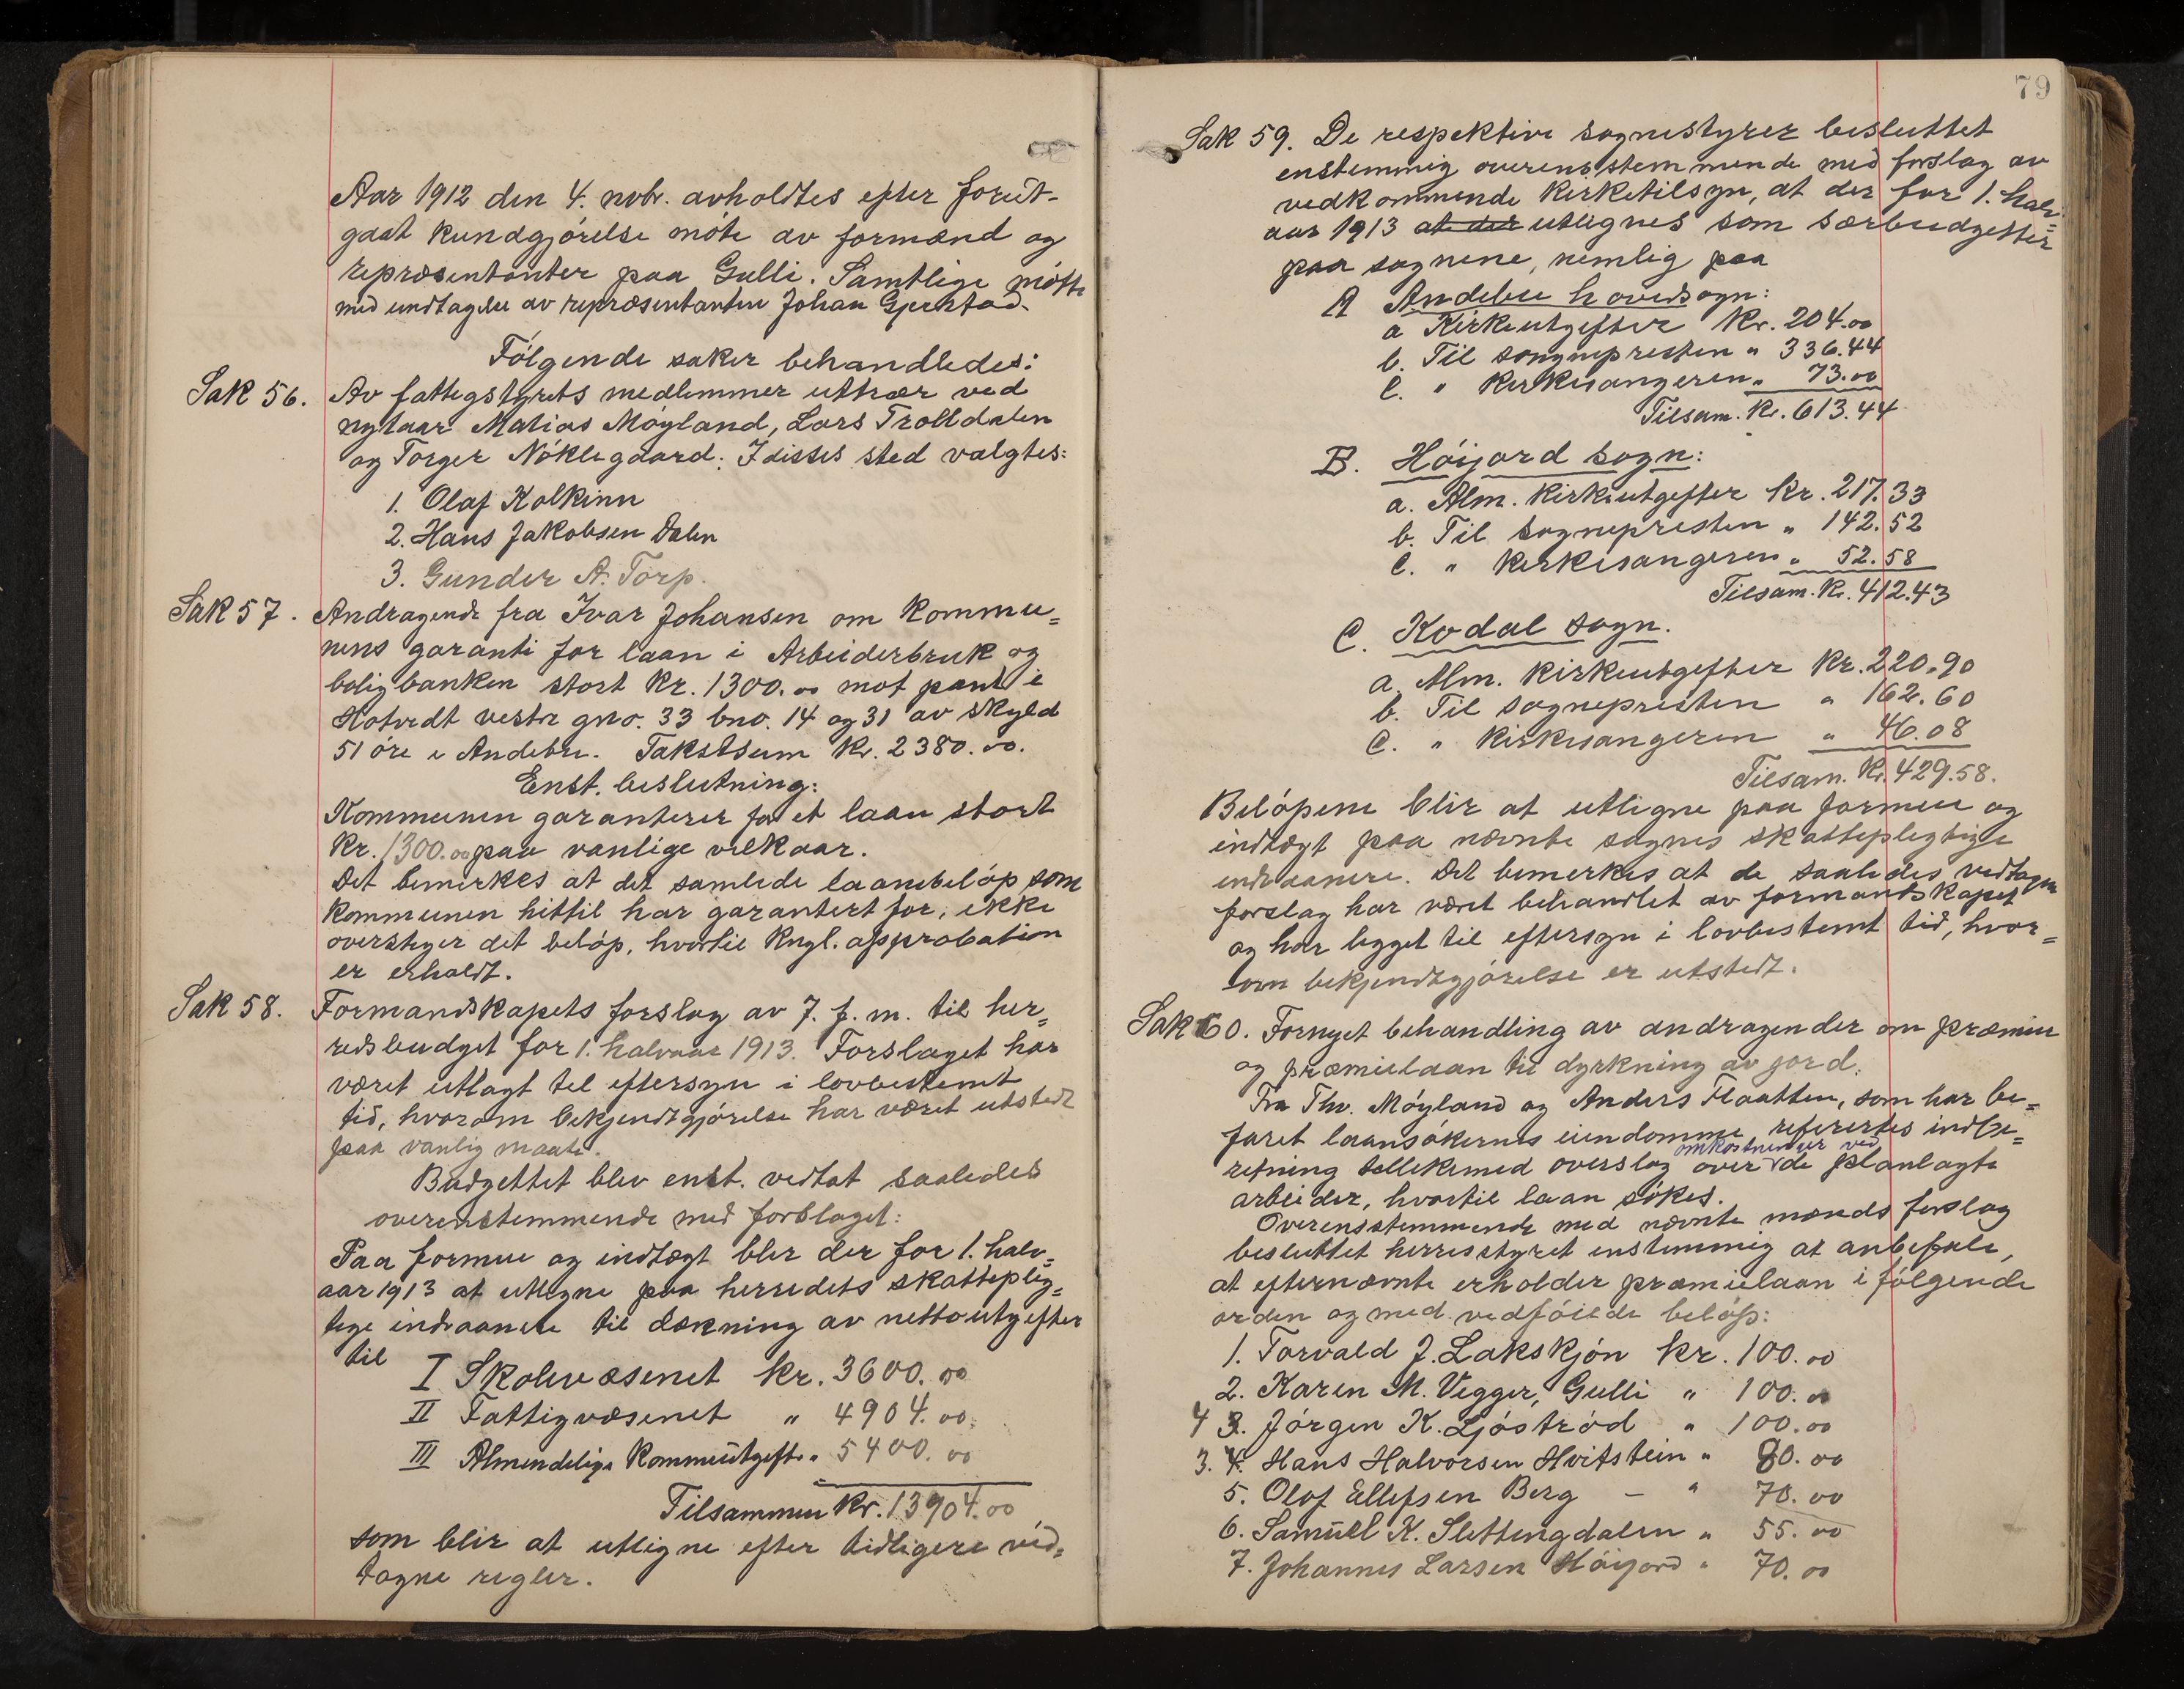 Aar 1912 den 4. nvbr. avholdtes efter forut-
gaat kundgjørelse møte av formænd og
repræsentanter paa Gulli. Samtlige møtte
med undtagelse av repræsentanten Johan Gjerstad.
Følgende saker behandledes:
Sak 56. Av fattigstyrets medlemmer uttrær ved
nytaar Matias Møyland, Lars Trolldalen
og Torger Nøklegaard. I disses sted valgtes:
1. Olaf Kolkinn
2. Hans Jakobsen Dalen
3. Gunder A. Torp.
Sak 57. Andragende fra Ivar Johansen om kommu=
nens garanti for laan i Arbeiderbruk og
boligbanken stort kr. 1300.00 mot pant i
Hotvedt vestre gno. 33 bno. 14 og 31 av skyld
51 øre i Andebu. Takstsum kr. 2380.00.
Enst. beslutning:
Kommunen garanterer for et laan stort
kr. 1300.00 paa vanlige vilkaar.
Det bemerkes at det samlede laanebeløp som
kommunen hittil har garantert for, ikke
overstiger det beløp, hvortil kngl. approbation
er erholdt.
Sak 58. Formandskapets forslag av 7. f. m. til her=
redsbudget for 1. halvaar 1913. Forslaget har
været utlagt til eftersyn i lovbestemt
tid, hvorom bekjendtgjørelse har været utstedt
paa vanlig maate.
Budgettet blev enst. vedtat saaledes
overensstemmende med forslaget:
Paa formue og indtægt blir der for 1. halv=
aar 1913 at utligne paa herredets skatteplig=
tige indvaanere til dækning av nettoutgifter
til
I Skolevæsenet kr. 3600.00
II Fattigvæsenet " 4904.00
III Almendelige kommuutgifter " 5400.00
Tilsammen kr. 13904.00
som blir at utligne efter tidligere ved=
tagne regler.
79
Sak 59. De respektive sognestyrer besluttet
enstemmig overensstemmende med forslag av
vedkommende kirketilsyn, at der for 1. halv=
aar 1913 at der utlignes som særbudgetter
paa sognene, nemlig paa
A Andebu hovedsogn:
a Kirkeutgifter kr. 204.00
b. Til sognepresten " 336.44
c. " kirkesangeren " 73.00
Tilsam. kr. 613.44
B. Høijord sogn:
a. Alm. kirkeutgifter kr. 217.33
b. Til sognepresten " 142.52
c. " kirkesangeren " 52.58
Tilsam. kr. 412.43
C. Kodal sogn.
a. Alm. kirkeutgifter kr. 220.90
b. Til sognepresten " 162.60
c. " kirkesangeren " 46.08
Tilsam. kr. 429.58.
Beløpene blir at utligne paa formue og
indtægt paa nævnte sognes skattepligtige
indvaanere. Det bemerkes at de saaledes vedtagne
forslag har været behandlet av formandskapet
og har ligget til eftersyn i lovbestemt tid, hvor=
om bekjendtgjørelse er utstedt.
Sak 60. Fornyet behandling av andragender om præmier
og præmielaan til dyrkning av jord.
Fra Thv. Møyland og Anders Flaatten, som har be=
faret laansøkernes eiendomme, refertes indbe=
omkostninger ved
retning tillikemed overslag over de planlagte
arbeider, hvortil laan søkes.
Overensstemmende med nævnte mænds forslag
besluttet herredsstyret enstemmig at anbefale,
at efternævnte erholder præmielaan i følgende
orden og med vedføiede beløp:
1. Torvald J. Lakskjøn kr. 100.00
2. Karen M. Vegger, Gulli " 100.00
4 3. Jørgen K. Ljøstrød " 100.00
3. 4. Hans Halvorsen Hvitstein " 80.00
5. Olaf Ellefsen Berg – " 70.00
6. Samuel K. Slettingdalen " 55.00
7. Johannes Larsen Høijord " 70.00